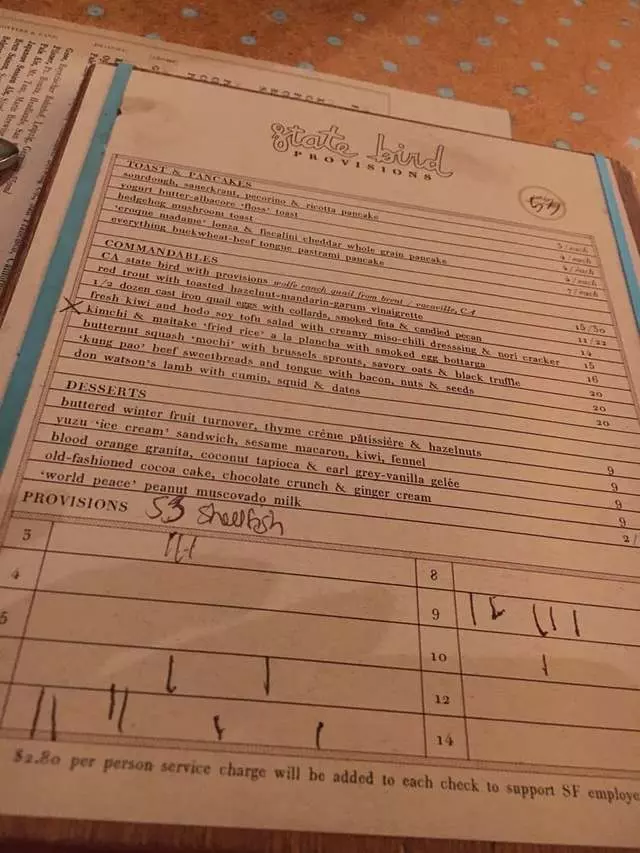 state bird
PROVISIONS
TOAST & PANCAKES
sourdough, sauerkraut, pecorino & ricotta pancake
yogurt butter-albacore 'floss' toast
hedgehog mushroom toast
'croque madame' lonza & fiscalini cheddar whole grain pancake
everything buckwheat-beef tongue pastrami pancake
3/each
4/each
4/each
4/each
7/each
COMMANDABLES
CA state bird with provisions wolfe ranch quail from brent / vacaville, CA 15/30
red trout with toasted hazelnut-mandarin-garum vinaigrette 11/22
1/2 dozen cast iron quail eggs with collards, smoked feta & candied pecan 14
fresh kiwi and hodo soy tofu salad with creamy miso-chili dresssing & nori cracker 15
X kimchi & maitake 'fried rice' a la plancha with smoked egg bottarga 16
butternut squash 'mochi' with brussels sprouts, savory oats & black truffle 20
'kung pao' beef sweetbreads and tongue with bacon, nuts & seeds 20
don watson's lamb with cumin, squid & dates 20
DESSERTS
buttered winter fruit turnover, thyme crème pâtissière & hazelnuts 9
yuzu 'ice cream' sandwich, sesame macaron, kiwi, fennel 9
blood orange granita, coconut tapioca & earl grey-vanilla gelée 9
old-fashioned cocoa cake, chocolate crunch & ginger cream 9
'world peace' peanut muscovado milk 2/
PROVISIONS S3 shellfish
3
8
4
9
5
10
12
14
$2.80 per person service charge will be added to each check to support SF employe